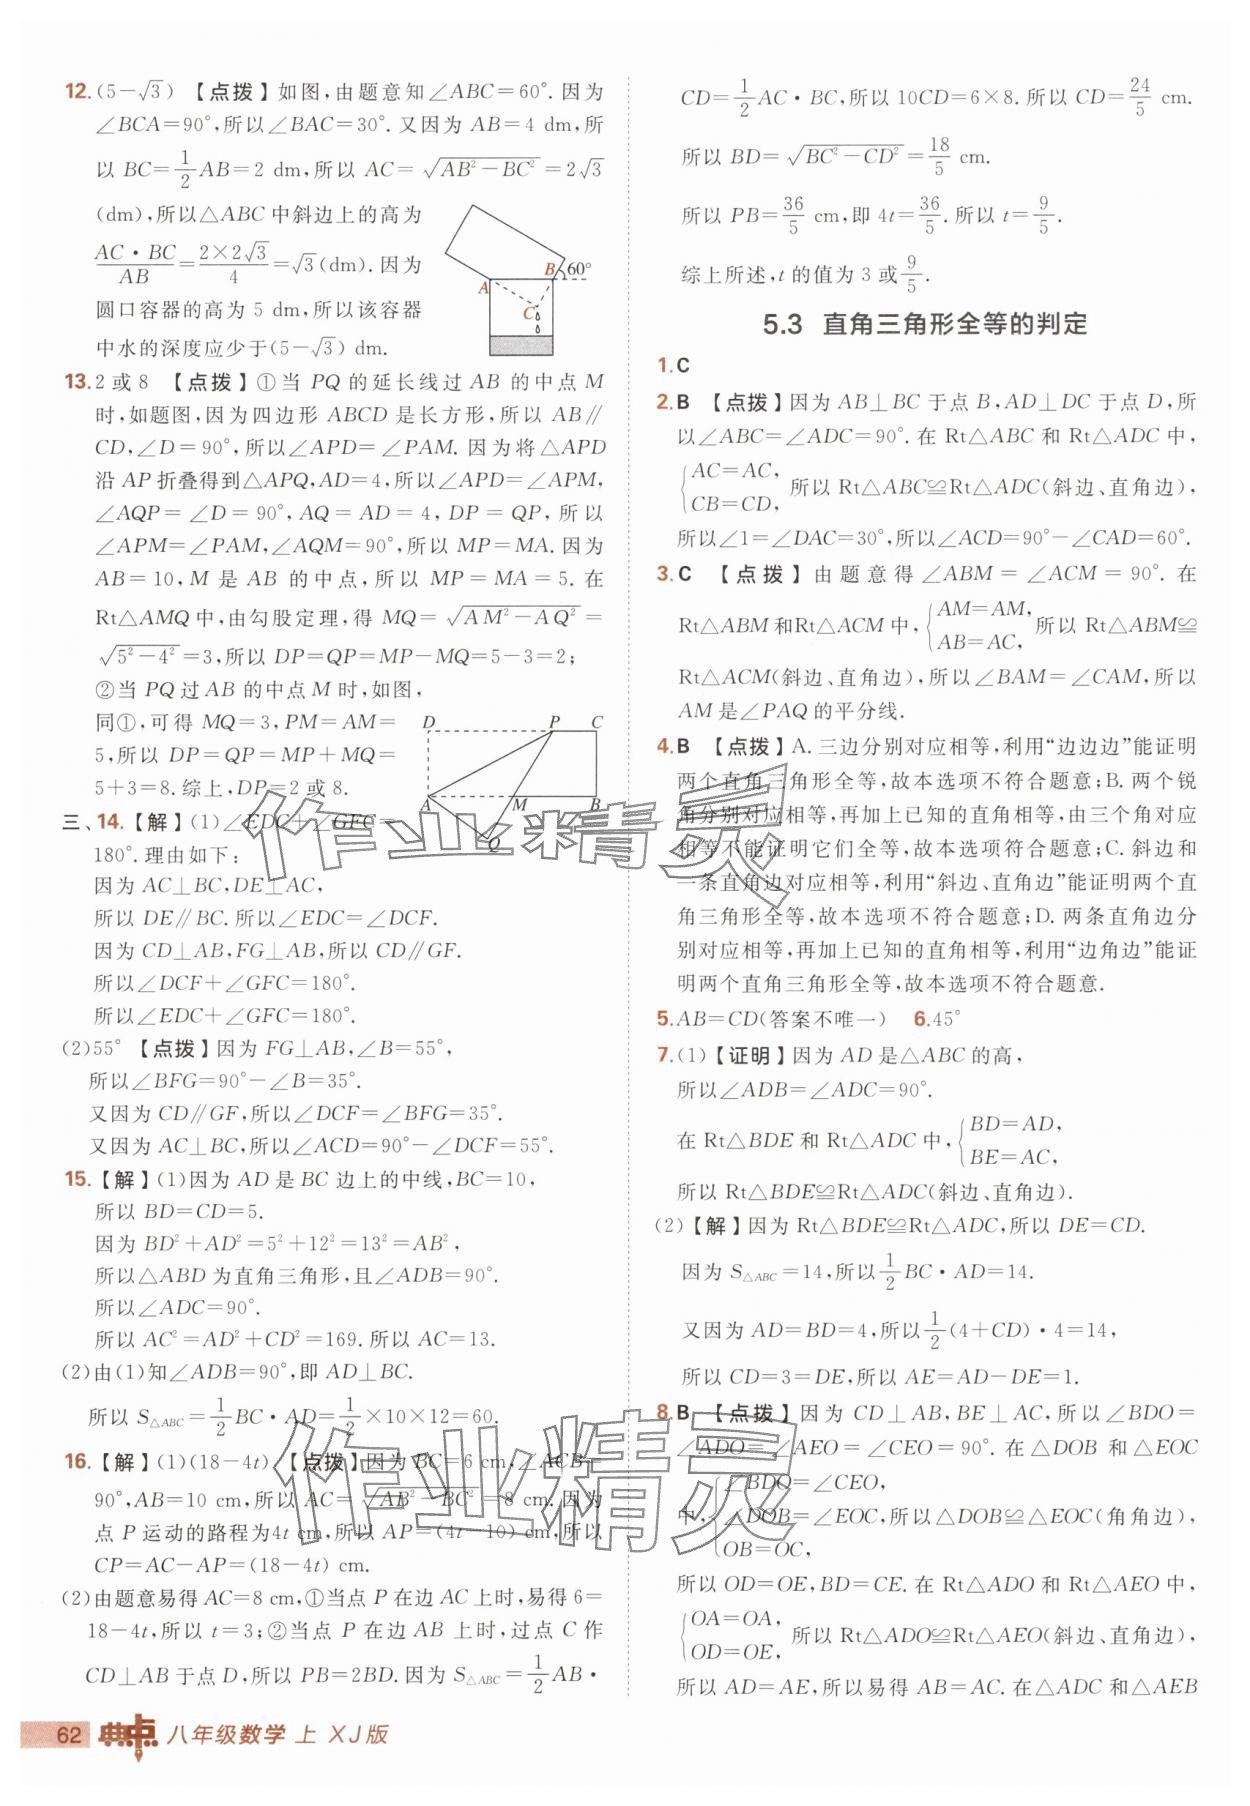 12.(5-√3) 【点拨】如图,由题意知∠ABC=60°.因为
∠BCA=90°,所以∠BAC=30°.又因为 AB=4 dm,所
以 BC=1/2 AB=2 dm,所以 AC=√(AB²-BC²)=2√3
(dm),所以△ABC 中斜边上的高为
(AC·BC)/AB=(2×2√3)/4=√3(dm).因为
圆口容器的高为 5 dm,所以该容器
中水的深度应少于(5-√3) dm.
A
B
60°
C
13.2 或 8 【点拨】①当 PQ 的延长线过 AB 的中点 M
时,如题图,因为四边形 ABCD 是长方形,所以 AB∥
CD,∠D=90°,所以∠APD=∠PAM.因为将△APD
沿 AP 折叠得到△APQ,AD=4,所以∠APD=∠APM,
∠AQP=∠D=90°,AQ=AD=4,DP=QP,所以
∠APM=∠PAM,∠AQM=90°,所以 MP=MA.因为
AB=10,M 是 AB 的中点,所以 MP=MA=5.在
Rt△AMQ 中,由勾股定理,得 MQ=√(AM²-AQ²)=
√(5²-4²)=3,所以 DP=QP=MP-MQ=5-3=2;
②当 PQ 过 AB 的中点 M 时,如图,
同①,可得 MQ=3,PM=AM=
5,所以 DP=QP=MP+MQ=
5+3=8.综上,DP=2 或 8.
D P C
A M B
Q
三、14.【解】(1)∠EDC+∠GFC=
180°.理由如下:
因为 AC⊥BC,DE⊥AC,
所以 DE∥BC.所以∠EDC=∠DCF.
因为 CD⊥AB,FG⊥AB,所以 CD∥GF.
所以∠DCF+∠GFC=180°.
所以∠EDC+∠GFC=180°.
(2)55° 【点拨】因为 FG⊥AB,∠B=55°,
所以∠BFG=90°-∠B=35°.
又因为 CD∥GF,所以∠DCF=∠BFG=35°.
又因为 AC⊥BC,所以∠ACD=90°-∠DCF=55°.
15.【解】(1)因为 AD 是 BC 边上的中线,BC=10,
所以 BD=CD=5.
因为 BD²+AD²=5²+12²=13²=AB²,
所以△ABD 为直角三角形,且∠ADB=90°.
所以∠ADC=90°.
所以 AC²=AD²+CD²=169.所以 AC=13.
(2)由(1)知∠ADB=90°,即 AD⊥BC.
所以 S△ABC=1/2 BC·AD=1/2×10×12=60.
16.【解】(1)(18-4t) 【点拨】因为 BC=6 cm,∠ACB=
90°,AB=10 cm,所以 AC=√(AB²-BC²)=8 cm.因为
点 P 运动的路程为4t cm,所以 AP=(4t-10) cm,所以
CP=AC-AP=(18-4t) cm.
(2)由题意易得 AC=8 cm,①当点 P 在边 AC 上时,易得 6=
18-4t,所以 t=3;②当点 P 在边 AB 上时,过点 C 作
CD⊥AB 于点 D,所以 PB=2BD.因为 S△ABC=1/2 AB·
CD=1/2 AC·BC,所以 10CD=6×8.所以 CD=24/5 cm.
所以 BD=√(BC²-CD²)=18/5 cm.
所以 PB=36/5 cm,即 4t=36/5.所以 t=9/5.
综上所述,t 的值为 3 或9/5.
5.3 直角三角形全等的判定
1.C
2.B 【点拨】因为 AB⊥BC 于点 B,AD⊥DC 于点 D,所
以∠ABC=∠ADC=90°.在 Rt△ABC 和 Rt△ADC 中,
{AC=AC,
CB=CD, 所以 Rt△ABC≌Rt△ADC(斜边、直角边),
所以∠1=∠DAC=30°,所以∠ACD=90°-∠CAD=60°.
3.C 【点拨】由题意得∠ABM=∠ACM=90°.在
Rt△ABM 和Rt△ACM 中,{AM=AM,
AB=AC, 所以 Rt△ABM≌
Rt△ACM(斜边、直角边),所以∠BAM=∠CAM,所以
AM 是∠PAQ 的平分线.
4.B 【点拨】A.三边分别对应相等,利用“边边边”能证明
两个直角三角形全等,故本选项不符合题意;B.两个锐
角分别对应相等,再加上已知的直角相等,由三个角对应
相等不能证明它们全等,故本选项符合题意;C.斜边和
一条直角边对应相等,利用“斜边、直角边”能证明两个直
角三角形全等,故本选项不符合题意;D.两条直角边分
别对应相等,再加上已知的直角相等,利用“边角边”能证
明两个直角三角形全等,故本选项不符合题意.
5.AB=CD(答案不唯一) 6.45°
7.(1)【证明】因为 AD 是△ABC 的高,
所以∠ADB=∠ADC=90°.
在 Rt△BDE 和 Rt△ADC 中,{BD=AD,
BE=AC,
所以 Rt△BDE≌Rt△ADC(斜边、直角边).
(2)【解】因为 Rt△BDE≌Rt△ADC,所以 DE=CD.
因为 S△ABC=14,所以1/2 BC·AD=14.
又因为 AD=BD=4,所以1/2(4+CD)·4=14,
所以 CD=3=DE,所以 AE=AD-DE=1.
8.B 【点拨】因为 CD⊥AB,BE⊥AC,所以∠BDO=
∠ADO=∠AEO=∠CEO=90°.在△DOB 和△EOC
中,{∠BDO=∠CEO,
∠DOB=∠EOC,所以△DOB≌△EOC(角角边),
OB=OC,
所以 OD=OE,BD=CE.在 Rt△ADO 和 Rt△AEO 中,
{OA=OA,
OD=OE, 所以 Rt△ADO≌Rt△AEO(斜边、直角边),
所以 AD=AE,所以易得 AB=AC.在△ADC 和△AEB
作业精灵
作业精灵
62 典点 八年级数学 上 XJ版